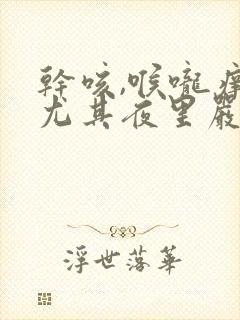 幹咳,喉嚨癢
尤其夜里嚴
浮世落華